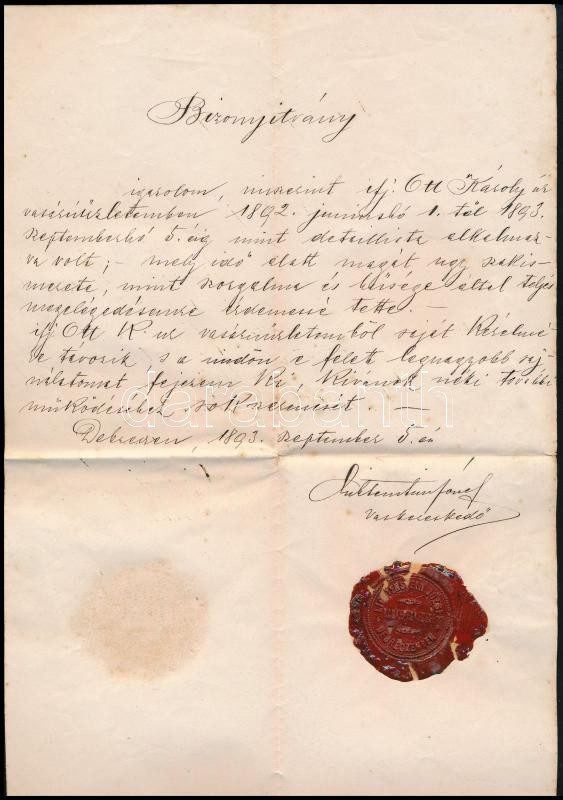 Bizonyitvány
igazolom, miszerint ifj. Ott Károly úr
vasárúüzletemben 1892. juniushó 1. től 1893.
szeptemberhó 5. éig mint detaillista alkalmaz-
va volt; - mely idő alatt magát ugy szakis-
merete, mint szorgalma és hűsége által teljes
megelégedésemre érdemessé tette. -
ifj. Ott K. ur vasárúüzletemből saját kérelmé-
re távozik s a midőn e felett legnagyobb saj-
nálatomat fejezem ki, kivánok néki további
működéséhez sok szerencsét. -
Debreczen, 1893. szeptember 5. én
József
vaskereskedő
darabanth
DEBRECZENBEN